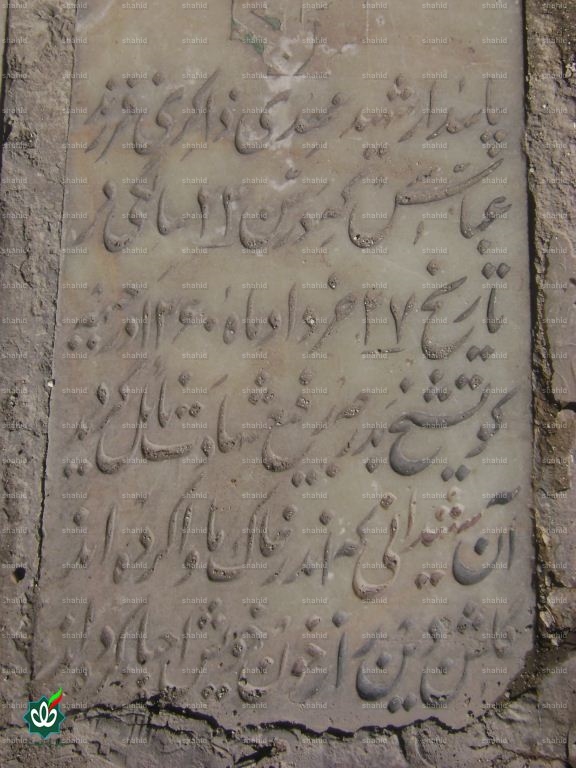 پاسدار شهید مهدی ذاکری فرزند
عباس که در سن ۲۲ سالگی در
تاریخ ۲۷ خرداد ماه ۱۳۶۰ در جبهه
شیخ بدرجه رفیع شهادت نائل گردید
آن شهیدانی که اندر خاک ماوا کرده اند
گلشن دین را ز خون خویش احیا کرده اند
shahid